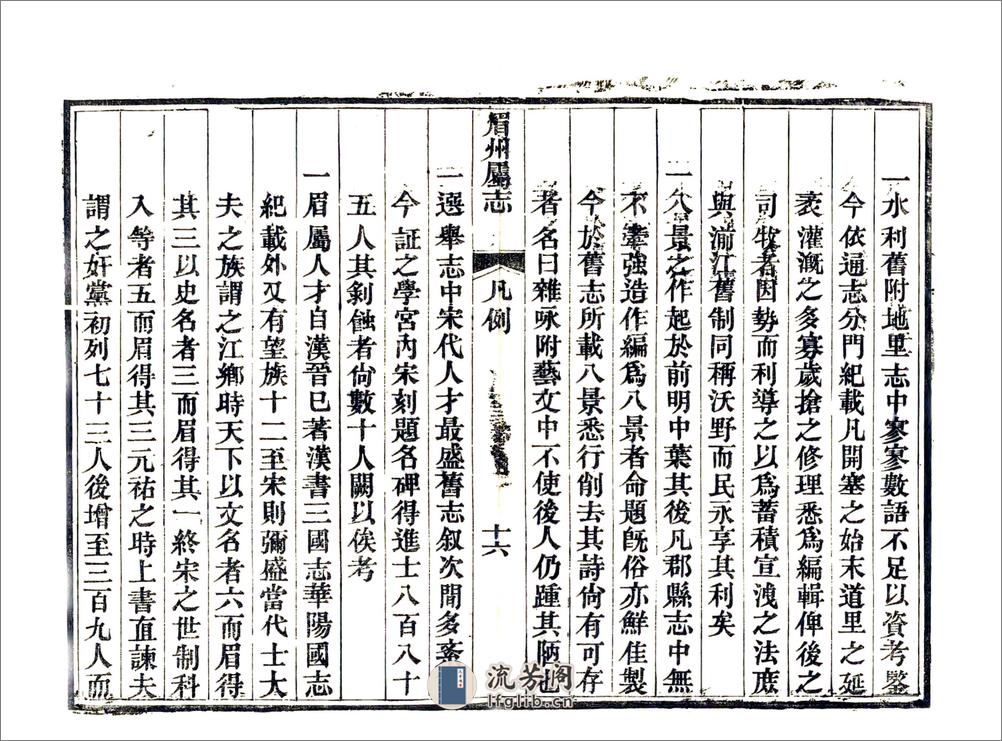 一水利舊附地里志中寥寥數語不足以資考鑒
今依通志分門紀載凡開塞之始末道里之延
袤灌溉之多寡歲搶之修理悉爲編輯俾後之
司牧者因勢而利導之以爲蓄積宣洩之法庶
與湔江舊制同稱沃野而民永享其利矣
一八景之作起於前明中葉其後凡郡縣志中無
不牽強造作編爲八景者命題旣俗亦鮮佳製
今於舊志所載八景悉行削去其詩尙有可存
者名曰雜咏附藝文中不使後人仍踵其陋也
眉州屬志
凡例
十六
一選舉志中宋代人才最盛舊志叙次間多紊
今証之學宮內宋刻題名碑得進士八百八十
五人其剝蝕者尙數十人闕以俟考
一眉屬人才自漢晉已著漢書三國志華陽國志
紀載外又有望族十二至宋則彌盛當代士大
夫之族謂之江鄉時天下以文名者六而眉得
其三以史名者三而眉得其一終宋之世制科
入等者五而眉得其三元祐之時上書直諫夫
謂之奸黨初列七十三人後增至三百九人而
流芳阁
lfglib.cn